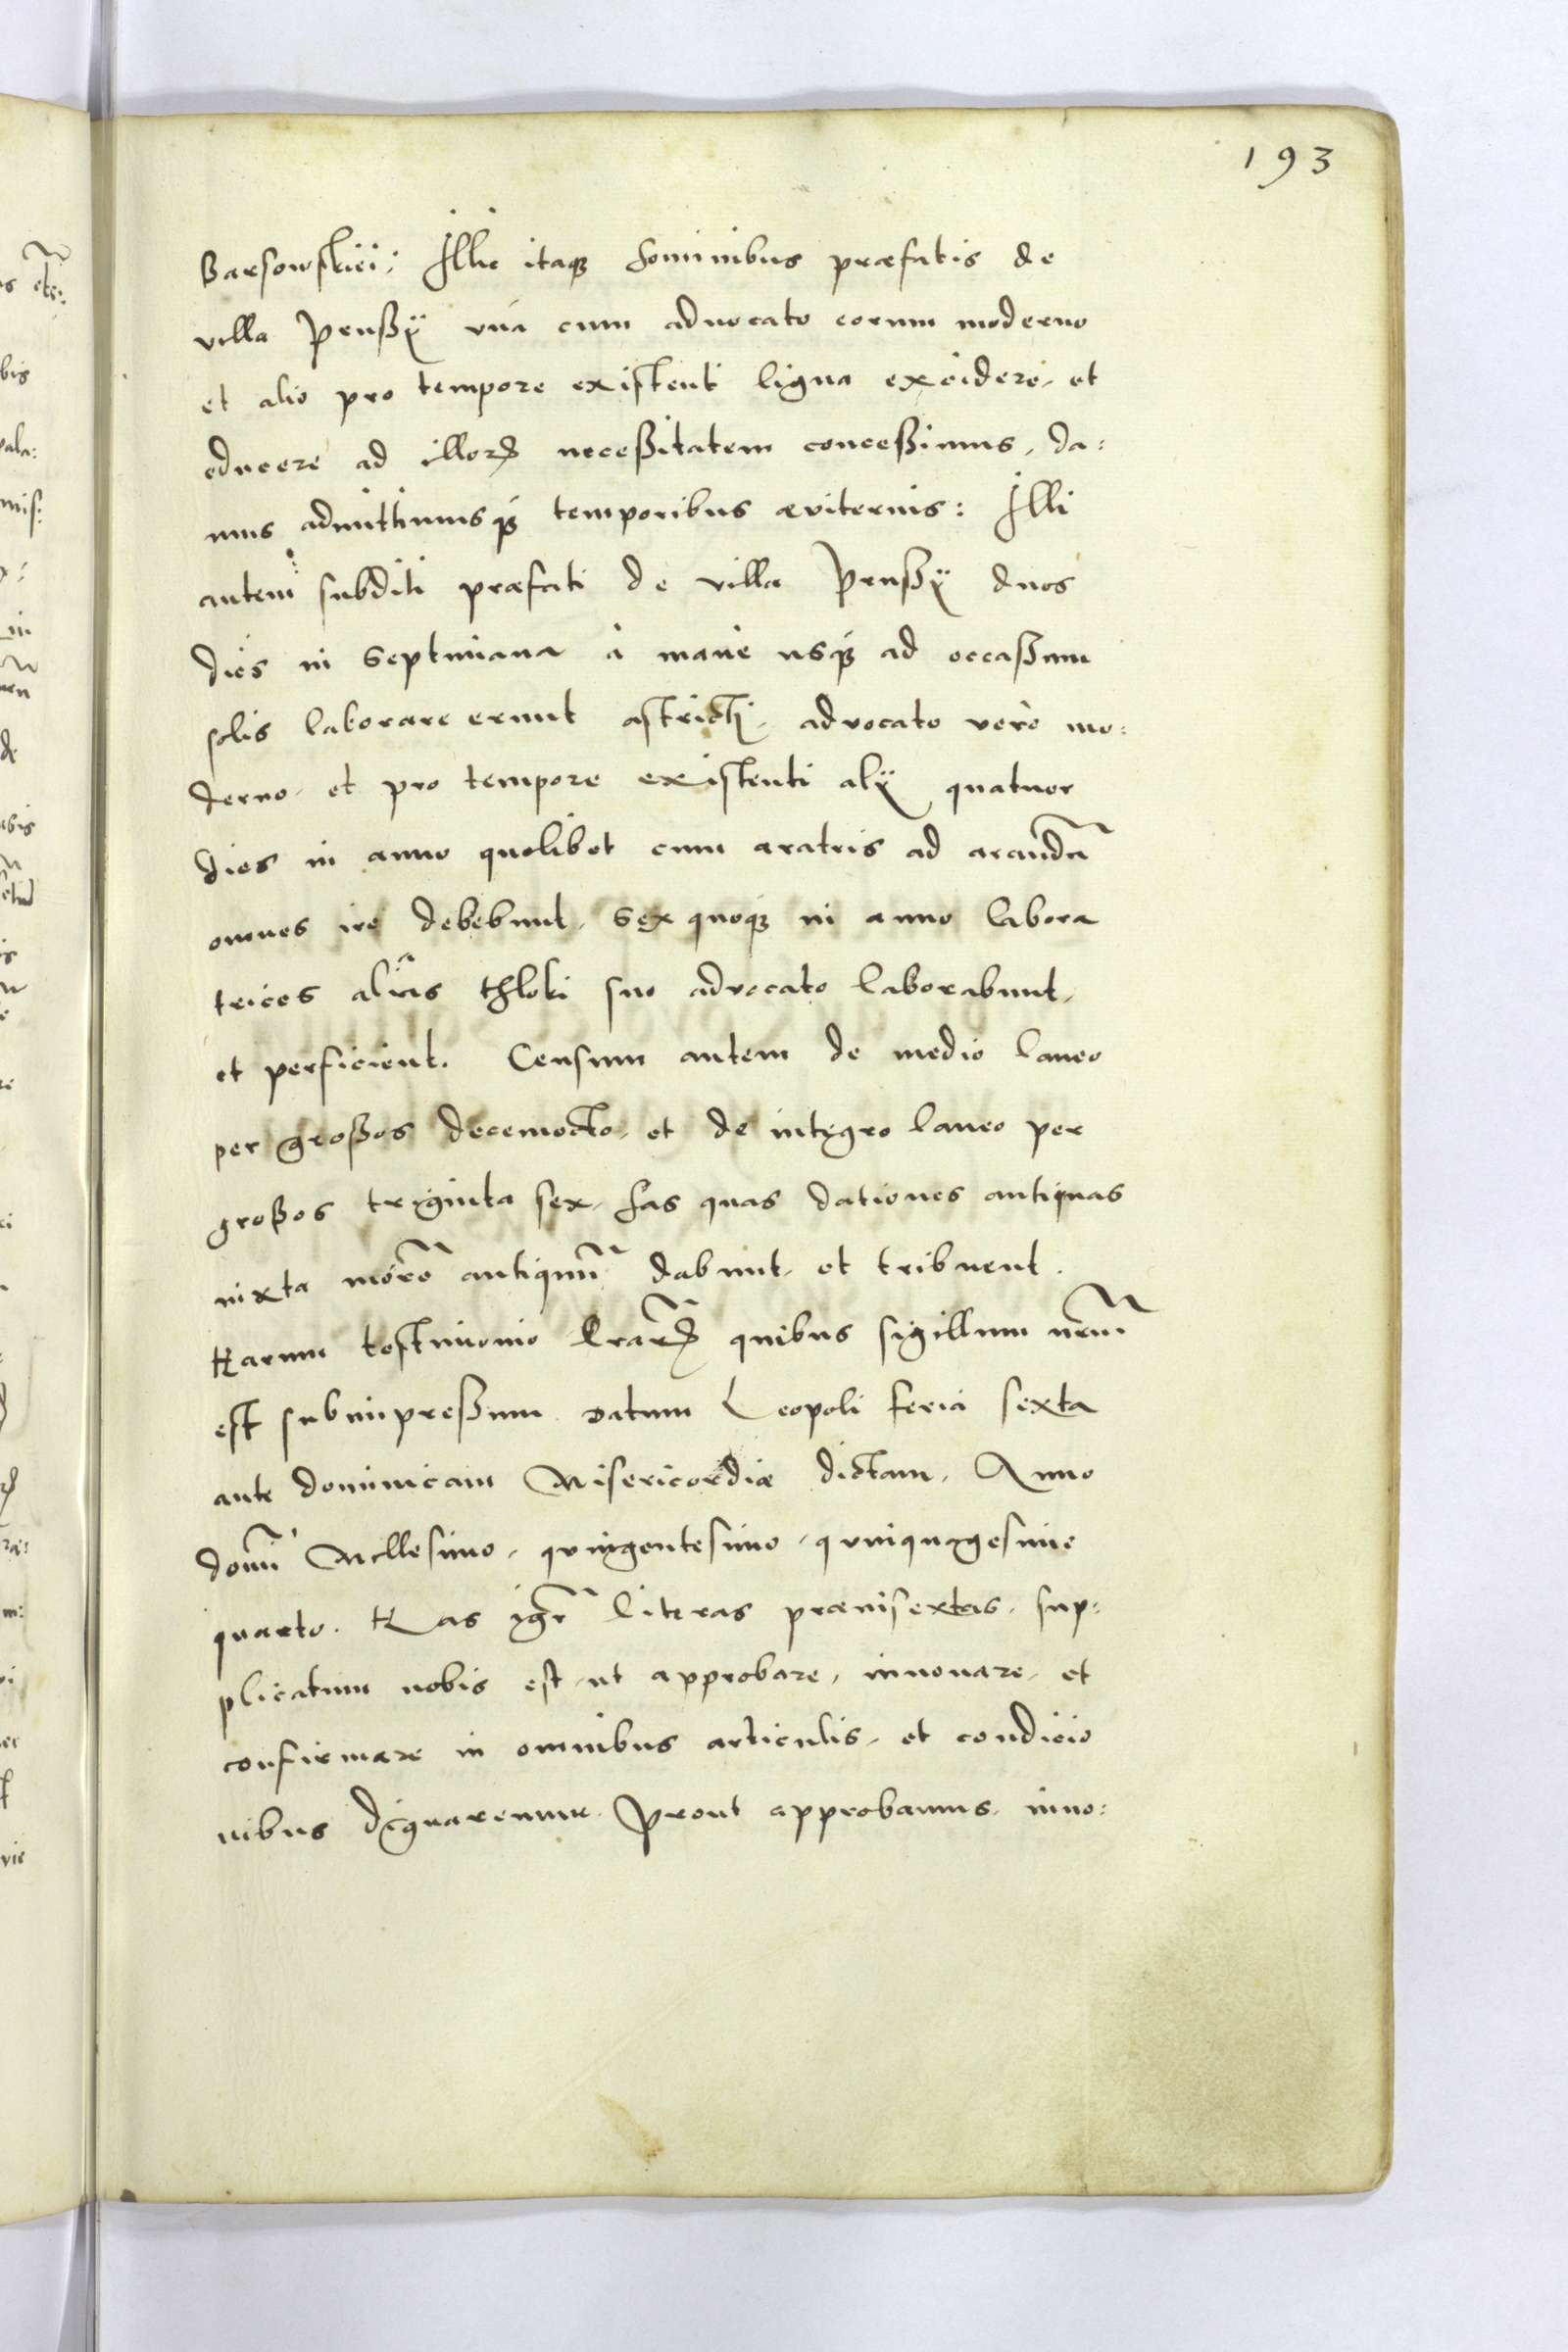 193
Barsowskiei: Illic itaqз hominibus præfatis de
villa Prußÿ vná cum aduocato eorum moderno
et alio pro tempore existenti ligna excidere, et
educere ad illorꝝ necessitatem conceßimus, da:
mus admittimusqз temporibus æviternis: Illi
autem subditi præfati de villa Prußÿ duos
dies in Septimana à mane usqз ad occaßum
solis laborare erunt astricti, advocato verò mo:
derno, et pro tempore existenti alÿ quatuor
dies in anno quolibet cum aratris ad arandũ
omnes ire debebunt, Sex quoqз in anno labora
trices aliâs thloki suo advocato laborabunt,
et perficient. Censum autem de medio laneo
per großos decemocto, et de integro laneo per
großos triginta sex, has quas dationes antiquas
iuxta morẽ antiquũ dabunt, et tribuent.
Harum testimonio lrarꝝ quibus sigillum nrm̃
est subimpreßum Datum Leopoli feria sexta
ante dominicam Misericordiæ dictam, Anno
domi Millesimo, quingentesimo, quinquagesimo
quarto. Has igr̃ literas præinsertas, sup:
plicatum nobis est, ut approbare, innouare, et
confirmare in omnibus articulis, et condicio
nibus dignaremur. Prout approbamus, inno: